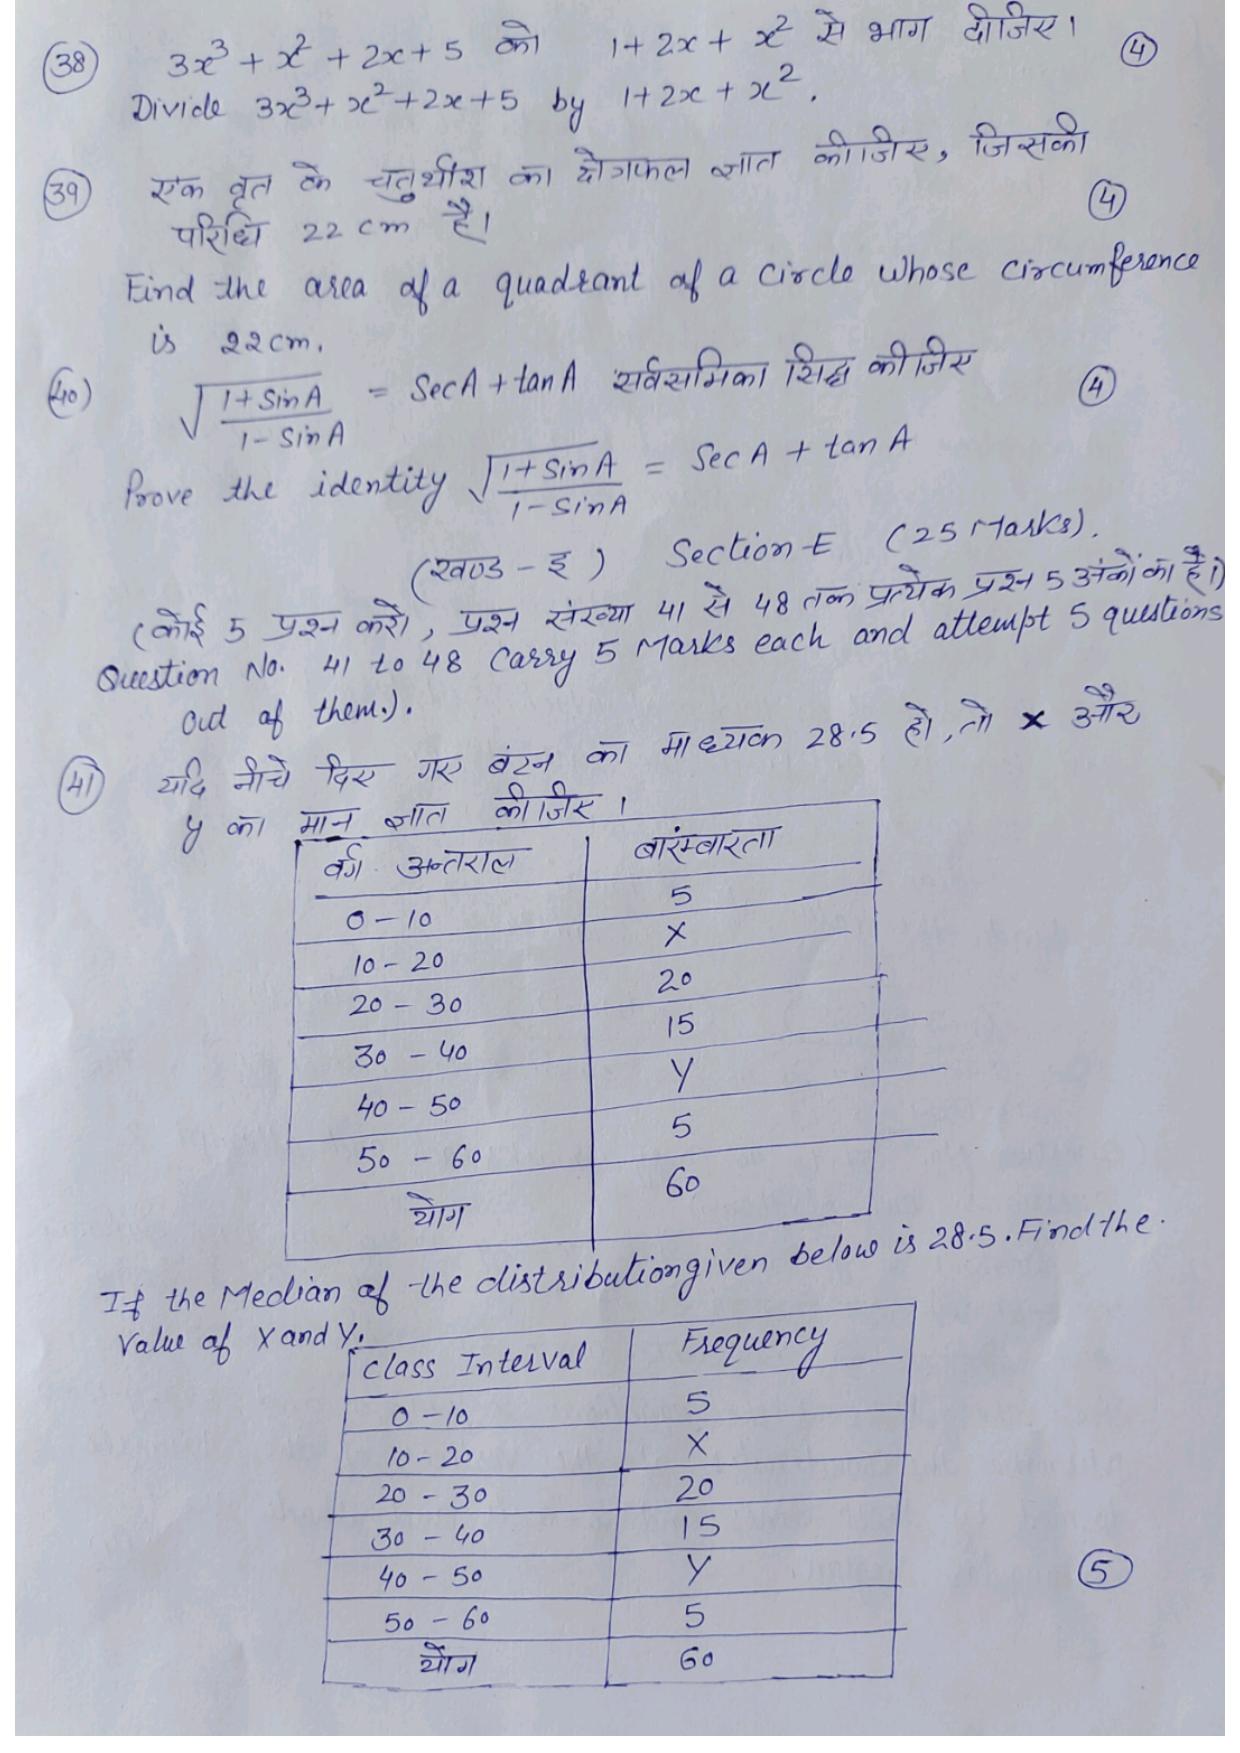 (38) 3x³ + x² + 2x + 5 को 1 + 2x + x² से भाग दीजिए। (4)
Divide 3x³ + x² + 2x + 5 by 1 + 2x + x².
(39) एक वृत के चतुर्थांश का क्षेत्रफल ज्ञात कीजिए, जिसकी
परिधि 22 cm है। (4)
Find the area of a quadrant of a circle whose circumference
is 22cm.
(40) √(1+SinA / 1-SinA) = SecA + tanA सर्वसमिका सिद्ध कीजिए (4)
Prove the identity √(1+SinA / 1-SinA) = SecA + tanA
(खण्ड - इ) Section-E (25 Marks).
(कोई 5 प्रश्न करो, प्रश्न संख्या 41 से 48 तक प्रत्येक प्रश्न 5 अंकों का है।)
Question No. 41 to 48 Carry 5 Marks each and attempt 5 questions
out of them.).
(41) यदि नीचे दिए गए बंटन का माध्यक 28.5 हो, तो x और
y का मान ज्ञात कीजिए।
वर्ग अन्तराल बारंम्बारता
0-10 5
10-20 X
20-30 20
30-40 15
40-50 Y
50-60 5
योग 60
If the Median of the distribution given below is 28.5. Find the.
Value of X and Y.
Class Interval Frequency
0-10 5
10-20 X
20-30 20
30-40 15
40-50 Y
50-60 5
योग 60
(5)